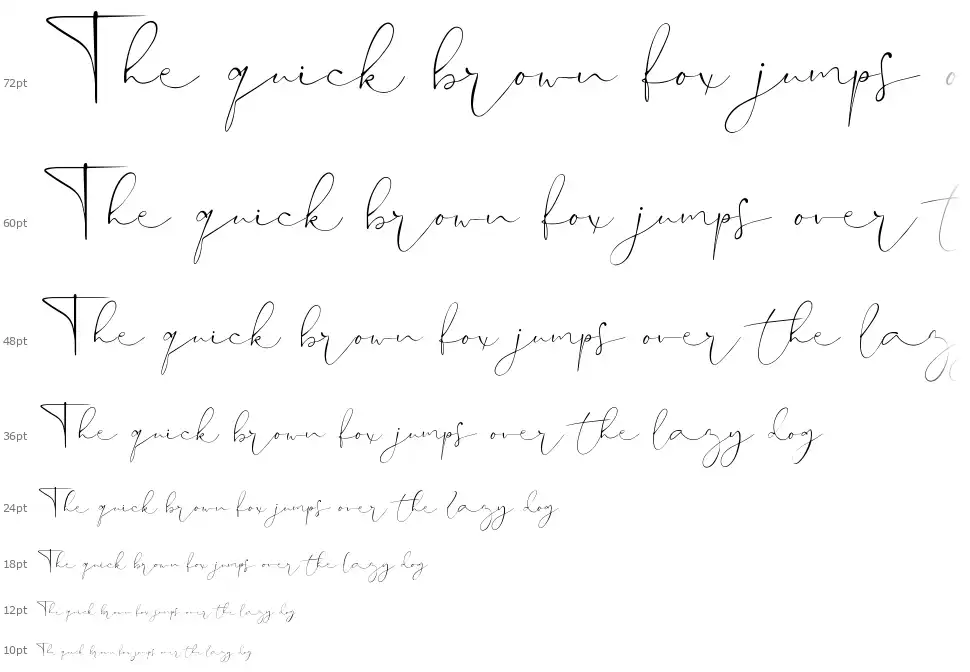 72pt The quick brown fox jumps o
60pt The quick brown fox jumps over t
48pt The quick brown fox jumps over the lazy
36pt The quick brown fox jumps over the lazy dog
24pt The quick brown fox jumps over the lazy dog
18pt The quick brown fox jumps over the lazy dog
12pt The quick brown fox jumps over the lazy dog
10pt The quick brown fox jumps over the lazy dog